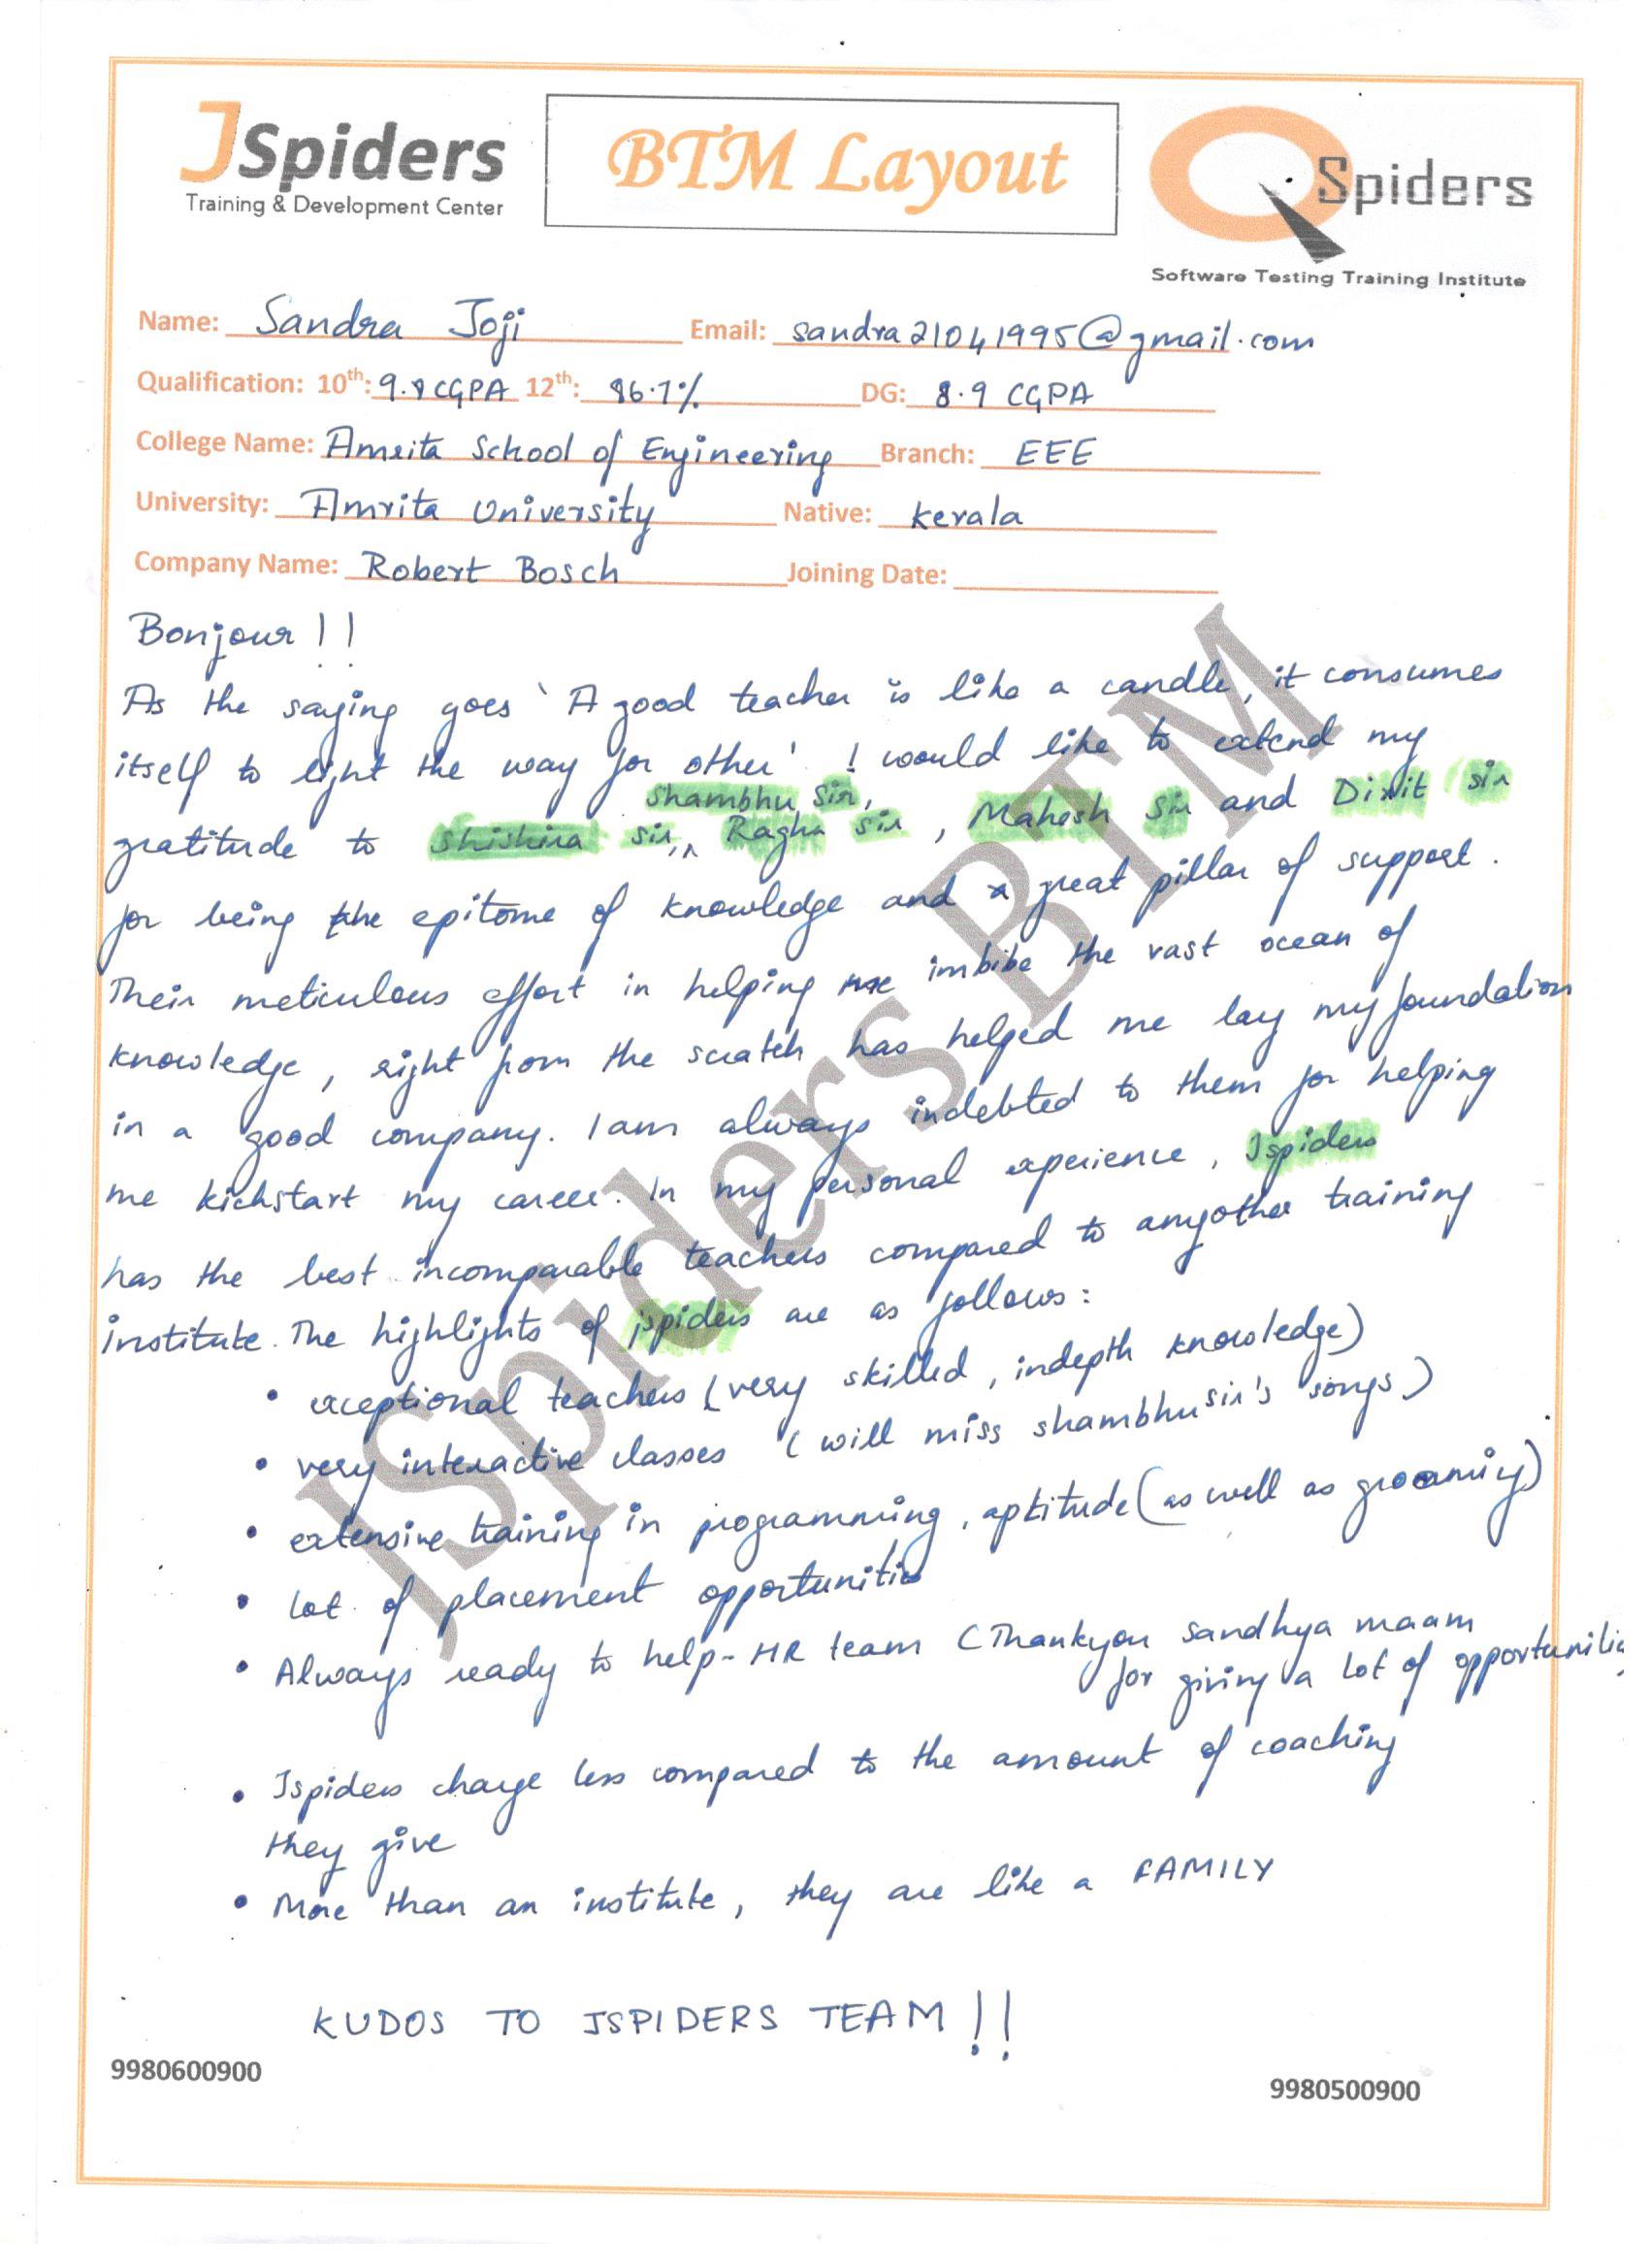 JSpiders
Training & Development Center
BTM Layout
QSpiders
Software Testing Training Institute
Name: Sandra Joji Email: sandra21041995@gmail.com
Qualification: 10th: 9.8 CGPA 12th: 86.7% DG: 8.9 CGPA
College Name: Amrita School of Engineering Branch: EEE
University: Amrita University Native: Kerala
Company Name: Robert Bosch Joining Date:
Bonjour !!
As the saying goes 'A good teacher is like a candle, it consumes
itself to light the way for other' I would like to extend my
gratitude to Shishira sir, Shambhu Sir, Raghu sir, Mahesh Sir and Dixit sir
for being the epitome of knowledge and a great pillar of support.
Their meticulous effort in helping me imbibe the vast ocean of
knowledge, right from the scratch has helped me lay my foundation
in a good company. I am always indebted to them for helping
me kickstart my career. In my personal experience, Jspiders
has the best incomparable teachers compared to anyother training
institute. The highlights of jspiders are as follows:
• exceptional teachers (very skilled, indepth knowledge)
• very interactive classes (will miss shambhu sir's songs)
• extensive training in programming, aptitude (as well as grooming)
• lot of placement opportunities
• Always ready to help - HR team (Thankyou Sandhya maam
for giving a lot of opportunities
• Jspiders charge less compared to the amount of coaching
they give
• More than an institute, they are like a FAMILY
KUDOS TO JSPIDERS TEAM !!
9980600900
9980500900
JSpiders BTM